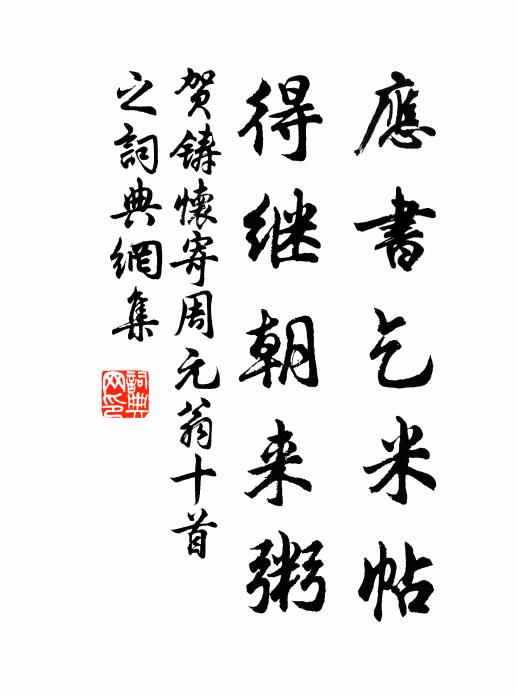 應書乞米帖
得继朝来粥
贺鑄懷寄周元翁十首
之詞典網集
詞典网印